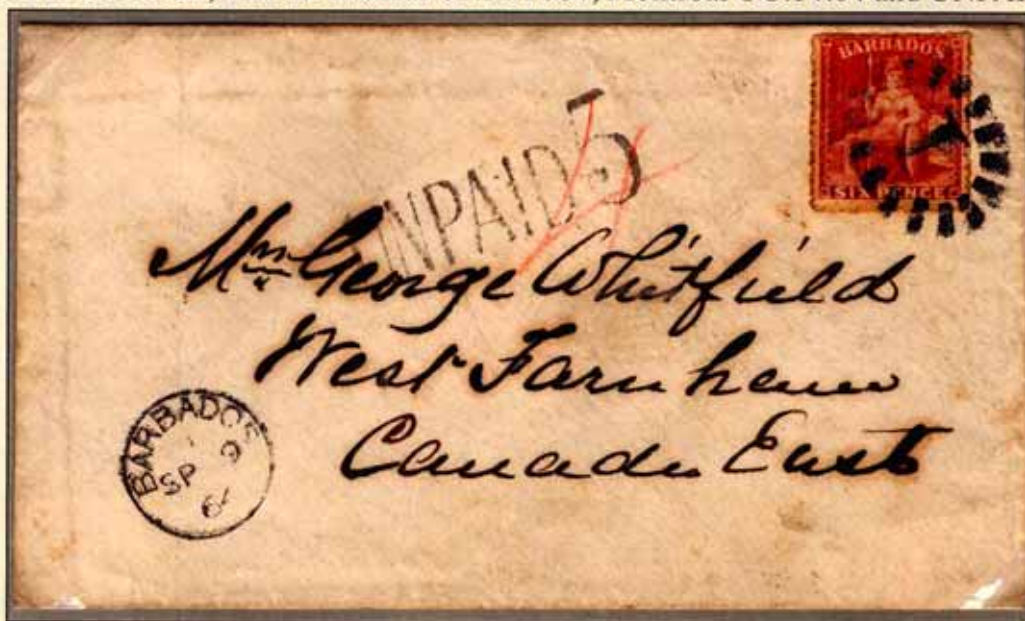 BARBADOS
SIX PENCE
1
UNPAID 5
Mr George Whitfield
West Farnham
Canada East
BARBADOS
SP 9
64